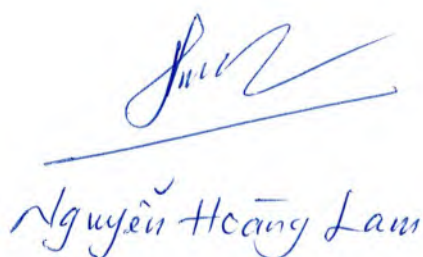 Nguyễn Hoàng Lam